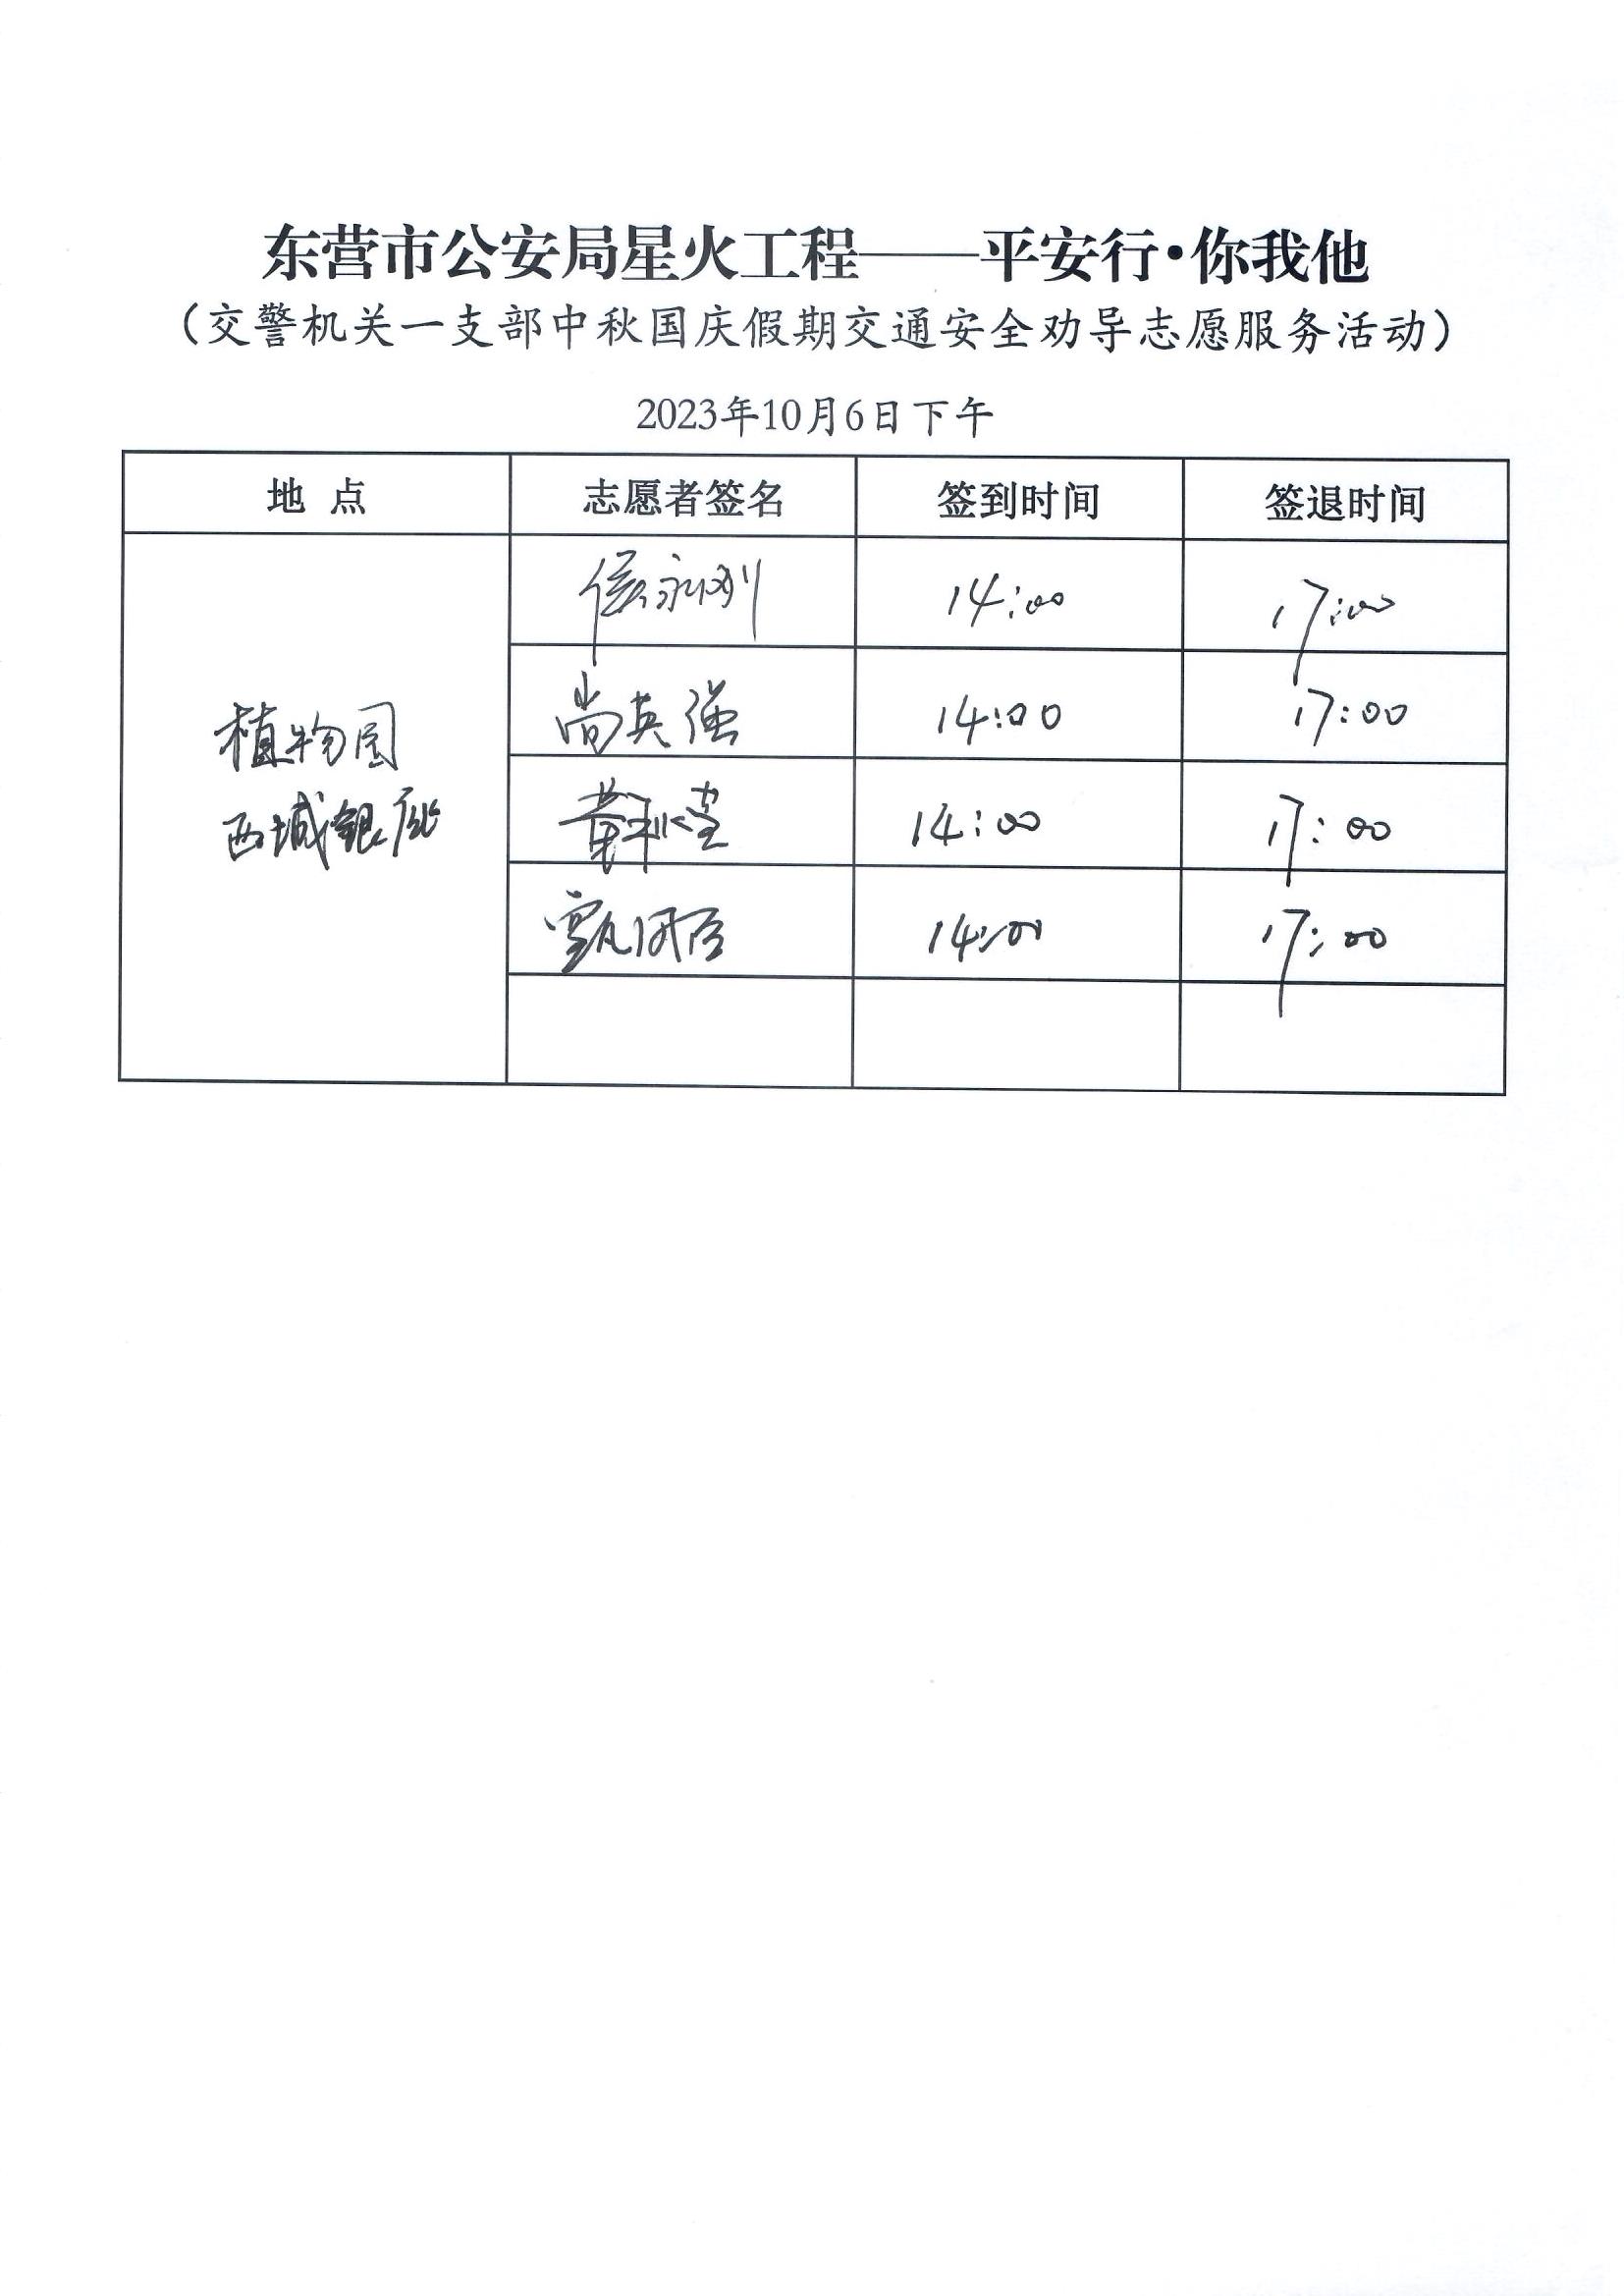 东营市公安局星火工程——平安行·你我他
（交警机关一支部中秋国庆假期交通安全劝导志愿服务活动）
2023年10月6日下午
地 点 志愿者签名 签到时间 签退时间
侯永刚 14:00 17:00
尚英强 14:00 17:00
植物园
西城银座
14:00 17:00
14:00 17:00